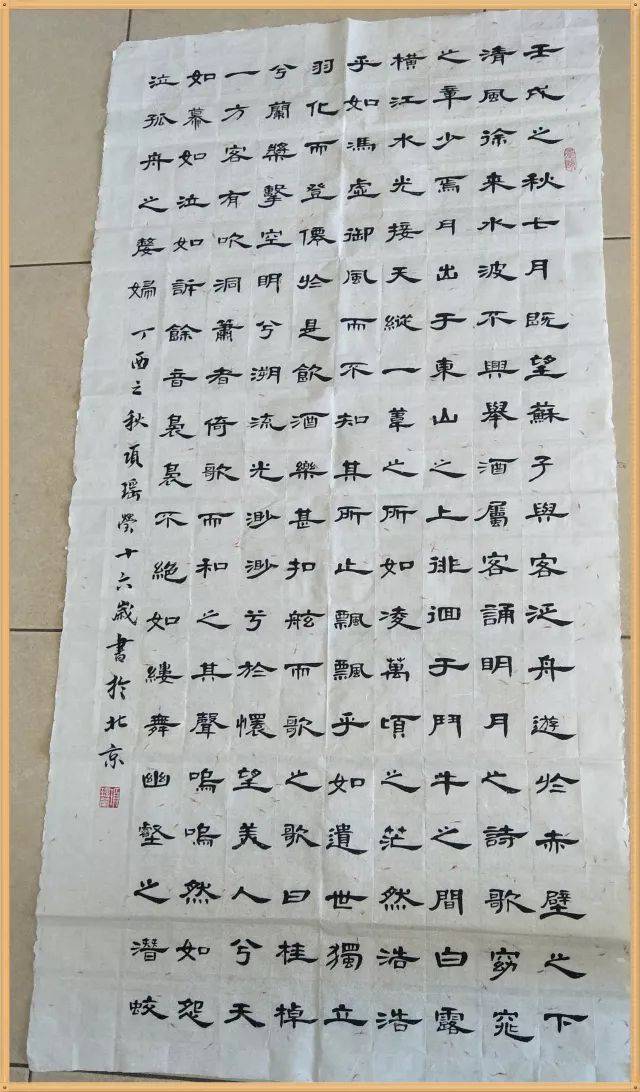 壬戌之秋七月既望蘇子與客泛舟遊於赤壁之下
清風徐來水波不興舉酒屬客誦明月之詩歌窈窕
之章少焉月出于東山之上徘徊于鬥牛之間白露
橫江水光接天縱一葦之所如凌萬頃之茫然浩浩
乎如馮虛御風而不知其所止飄飄乎如遺世獨立
羽化而登僊於是飲酒樂甚扣舷而歌之歌曰桂棹
兮蘭槳擊空明兮溯流光渺渺兮於懷望美人兮天
一方客有吹洞簫者倚歌而和之其聲嗚嗚然如怨
如慕如泣如訴餘音裊裊不絕如縷舞幽壑之潛蛟
泣孤舟之嫠婦 丁酉之秋項瑤瑩十六歲書於北京